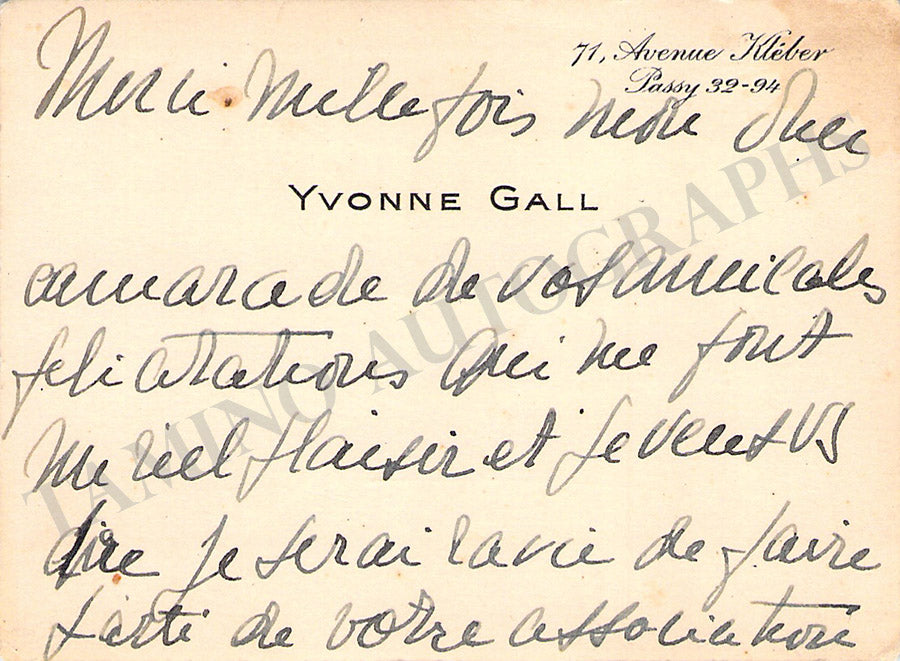 71, Avenue Kléber
Passy 32-94
Merci mille fois mon cher
YVONNE GALL
camarade de vos amicales
félicitations qui me font
un réel plaisir et je veux vs
dire je serai ravie de faire
parti de votre association
TAMINO AUTOGRAPHS